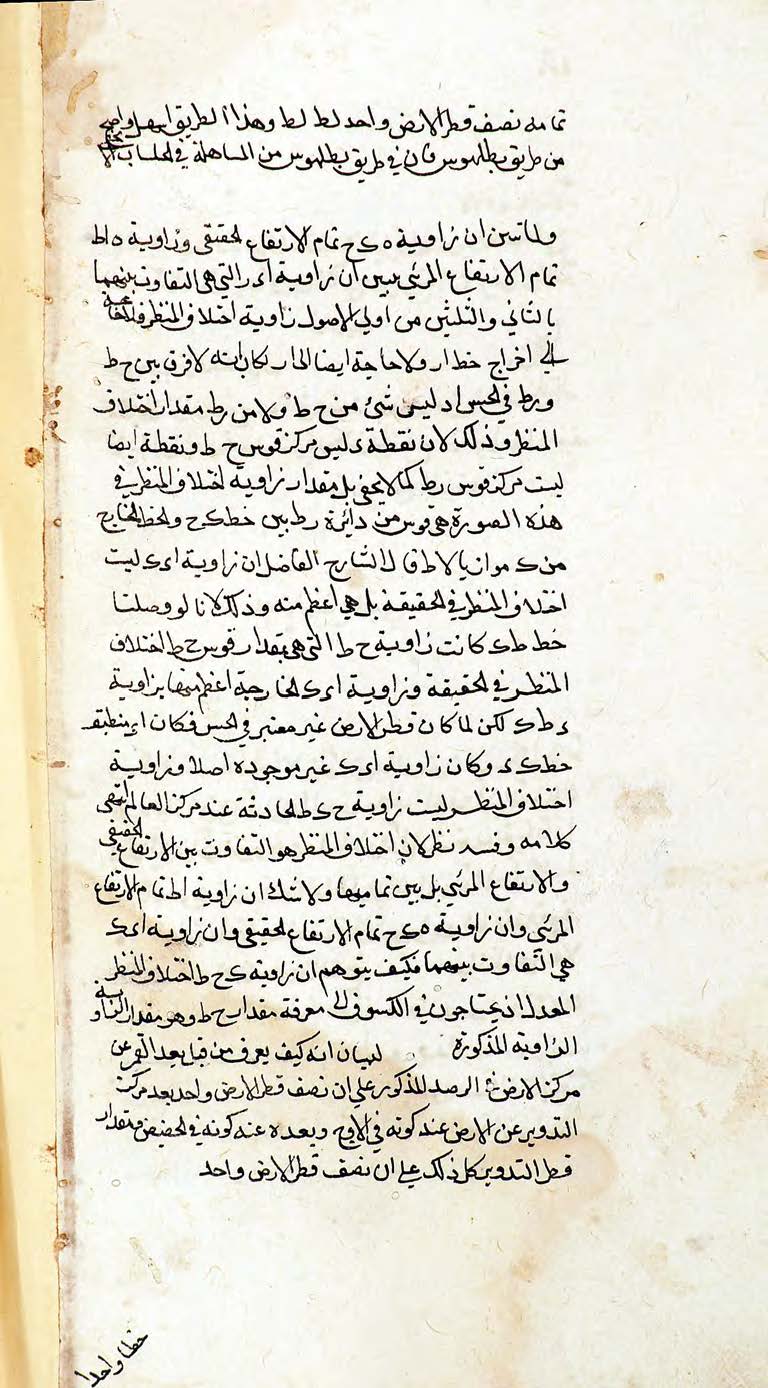 تمامه نصف قطر الارض واحد لط لط وهذا الطريق اسهل واصح
من طريق بطلميوس فان في طريق بطلميوس من المساهلة في الحساب
ولما تبين ان زاوية ه ك ح تمام الارتفاع الحقيقي وزاوية ه ا ط
تمام الارتفاع المرئي يتبين ان زاوية ا ء ر التي هي التفاوت بينهما
بالثاني والثلثين من اولى الاصول زاوية اختلاف المنظر فلا حاجة
الى اخراج خط ا ر ولا حاجة ايضا الى ا ر لكان انه لا فرق بين ح ط
و ر ط في الحس اذ ليس شئ من ح ط ولا من ر ط مقدار اختلاف
المنظر وذلك لان نقطة ء ليس مركز قوس ح ط ونقطة ايضا
ليست مركز قوس ر ط كما لا يخفى بل مقدار زاوية اختلاف المنظر في
هذه الصورة هي قوس من دائرة ر ط بين خط ك ح والخط الخارج
من ك موازيا لا ط قال الشارح الفاضل ان زاوية ا ء ك ليست
اختلاف المنظر في الحقيقة بل هي اعظم منه وذلك لانا لو وصلنا
خط ط ك كانت زاوية ح ط التي هي بمقدار قوس ح ط اختلاف
المنظر في الحقيقة وزاوية ا ء ك الخارجة اعظم منها بزاوية
ء ط ك لكن لما كان قطر الارض غير معتبر في الحس فكان ا ء منطبقة
خط ك ء وكان زاوية ا ء ك غير موجودة اصلا وزاوية
اختلاف المنظر ليست زاوية ح ك ط الحادثة عند مركز العالم انتهى
كلامه وفيه نظر لان اختلاف المنظر هو التفاوت بين الارتفاع الحقيقي
والارتفاع المرئي بل بين تماميهما ولا شك ان زاوية ا ط تمام الارتفاع
المرئي وان زاوية ه ك ح تمام الارتفاع الحقيقي وان زاوية ا ء ك
هي التفاوت بينهما فكيف يتوهم ان زاوية ك ح ط اختلاف المنظر
المعدل اذ يحتاجون في الكسوف الى معرفة مقدار ح ط وهو مقدار الزاوية
الزاوية المذكورة لبيان انه كيف يعرف من قبل بعد القمر عن
مركز الارض في الرصد المذكور على ان نصف قطر الارض واحد بعد مركز
التدوير عن الارض عند كونه في الاوج وبعده عند كونه في الحضيض ومقدار
قطر التدوير كل ذلك على ان نصف قطر الارض واحد
خطا واحدا